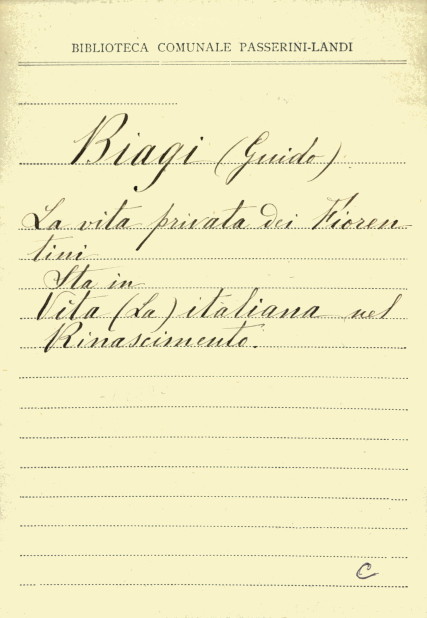 BIBLIOTECA COMUNALE PASSERINI-LANDI
Biagi (Guido)
La vita privata dei Fioren-
tini
Sta in
Vita (La) italiana nel
Rinascimento.
C